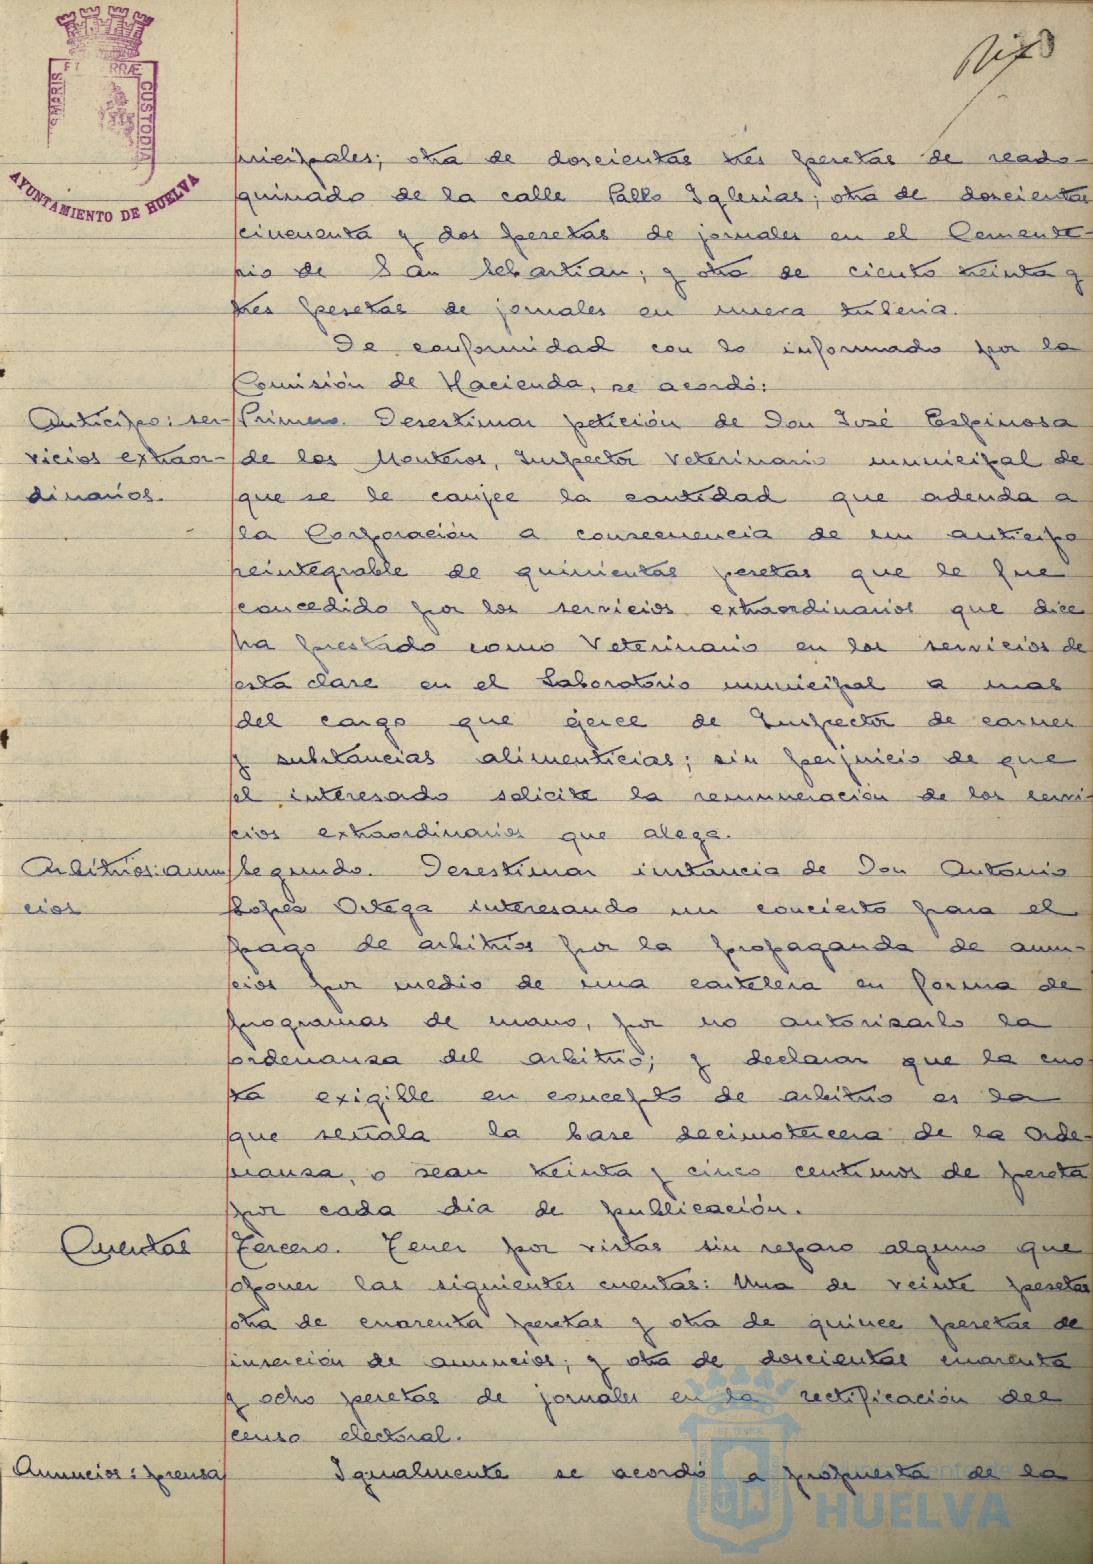 PORTUS MARIS
ET TERRÆ
CUSTODIA
AYUNTAMIENTO DE HUELVA
nicipales; otra de doscientas tres pesetas de reado-
quinado de la calle Pablo Iglesias; otra de doscientas
cincuenta y dos pesetas de jornales en el Cemente-
rio de San Sebastian; y otra de ciento treinta y
tres pesetas de jornales en nueva tuberia.
De conformidad con lo informado por la
Comisión de Hacienda, se acordó:
Anticipo: ser-
vicios extraor-
dinarios.
Primero. Desestimar petición de Don José Espinosa
de los Monteros, Inspector Veterinario municipal de
que se le canjee la cantidad que adeuda a
la Corporación a consecuencia de un anticipo
reintegrable de quinientas pesetas que le fue
concedido por los servicios extraordinarios que dice
ha prestado como Veterinario en los servicios de
esta clase en el Laboratorio municipal a mas
del cargo que ejerce de Inspector de carnes
y substancias alimenticias; sin perjuicio de que
el interesado solicite la remuneración de los servi-
cios extraordinarios que alega.
Arbitrios: anun
cios
Segundo. Desestimar instancia de Don Antonio
Lopez Ortega interesando un concierto para el
pago de arbitrios por la propaganda de anun-
cios por medio de una cartelera en forma de
programas de mano, por no autorizarlo la
ordenanza del arbitrio; y declarar que la cuo-
ta exigible en concepto de arbitrio es la
que señala la base decimotercera de la Orde-
nansa, o sean treinta y cinco centimos de peseta
por cada dia de publicación.
Cuentas
Tercero. Tener por vistas sin reparo alguno que
oponer las siguientes cuentas: Una de veinte pesetas
otra de cuarenta pesetas y otra de quince pesetas de
inserción de anuncios; y otra de doscientas cuarenta
y ocho pesetas de jornales en la rectificación del
censo electoral.
Anuncios: prensa
Igualmente se acordó a propuesta de la
Ayuntamiento de
HUELVA